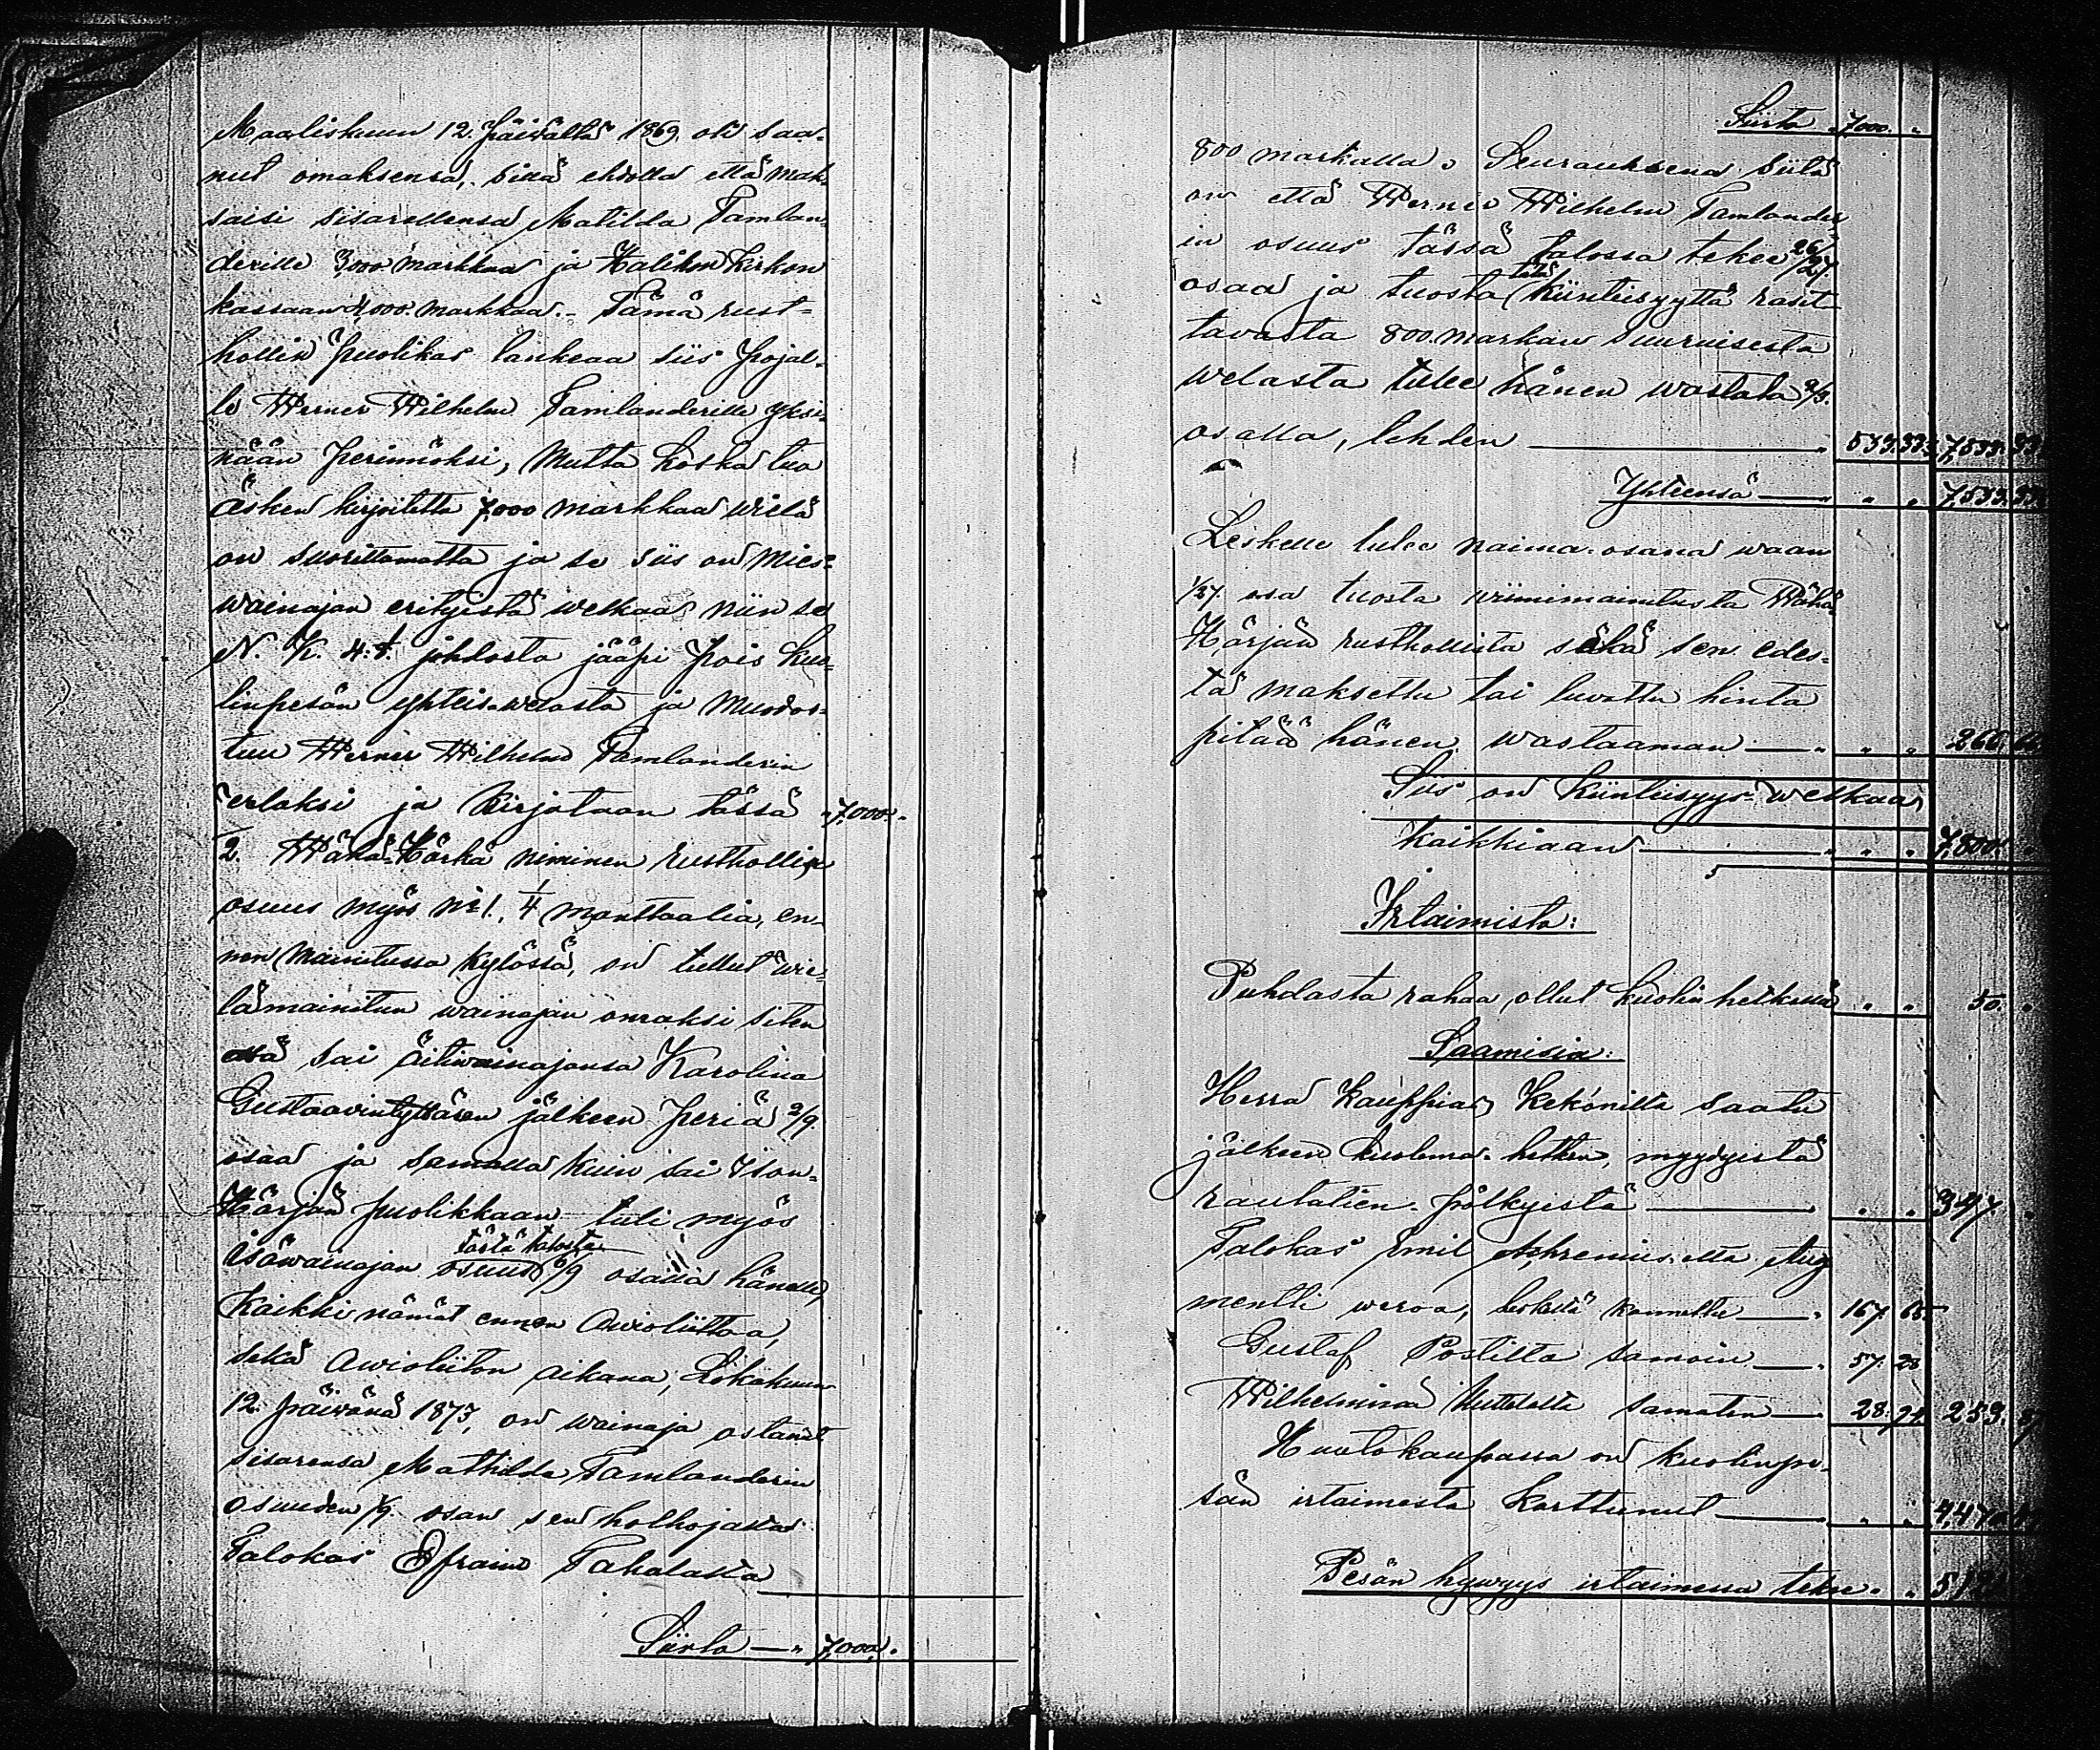 Maaliskuun 12. päivältä 1869. oli saa-
nut omaksensa, sillä ehdolla että mak-
saisi sisarellensa Matilda Tamlan-
derille 3000 markkaa ja Halikon Kirkon
kassaan 4,000. markkaa. - Tämä rust-
hollin puolikas lankeaa siis pojal-
le Werner Wilhelm Tamlanderille yksi-
nään perinnöksi, Mutta koska tuo
äsken kirjoitettu 7,000 markkaa wielä
on suorittamatta ja se siis on Mies-
wainajan erityistä welkaa niin se
N. K. 4: johdosta jääpi pois kuo-
linpesän yhteis-welasta ja muodos-
tuu Werner Wilhelm Tamlanderin
eriaksi ja Kirjataan tässä " 7,000. "
2. Wähä-Härkä niminen rusthollin
osuus myös No 1., 1/4 manttaalia, en-
nen mainitussa kylässä, on tullut wie-
lämainitun wainajan omaksi siten
että sai äitiwainajansa Karolina
Gustaavintyttären jälkeen periä 2/9.
osaa ja samalla kuin sai Ison-
Härjän puolikkaan tuli myös
tästä talosta
isäwainajan osuus 6/9 osalla hänelle,
Kaikki nämät ennen Awioliittoa,
sekä Awioliiton aikana, Lokakuun
12. päivänä 1873, on wainaja ostanut
sisarensa Mathilda Tamlanderin
osuuden 1/9. osan sen holhojalta
Talokas Efraim Tahalalta
Siirto — " 7,000. "
Siirto 7,000. "
800 markalla. Seurauksena siitä
on että Werner Wilhelm Tamlander-
in osuus tässä talossa tekee 26/27.
osaa ja tuosta tätä kiinteisyyttä rasit-
tavasta 800. markan suuruisesta
welasta tulee hänen wastata 2/3.
osalla, tehden — " 533. 33. 7,533. 33
Yhteensä — " " " 7,533. 33
Leskelle tulee naima-osana waan
1/27. osa tuosta wiimimainitusta Wähä
Härjän rusthollista sekä sen edes-
tä maksettu tai luvattu hinta
pitää hänen wastaaman — " " " 266. 66
Siis on Kiinteisyys-Welkaa
Kaikkiaan — " " " 7,800. "
Irtaimisto:
Puhdasta rahaa ollut kuolin hetkellä " " 50. "
Saamisia:
Herra Kauppias Kekonilta saatu
jälkeen kuolema-hetken, myydyistä
rautatien-pölkyistä — " " " 347. "
Talokas Emil Ahreniukselta Aug
mentti weroa, leskeltä kannettu — " 167. 65.
Gustaf Postilta samoin — " 57. 28
Wilhelmina samaten — 28. 94 253. 87
Huutokaupassa on kuolinpe-
sän irtaimesta Karttunut — " " " 4,47
Pesän hywyys irtaimessa tekee " " 5,12